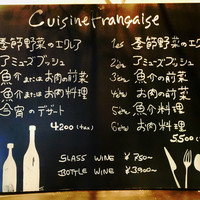 Cuisine française
季節野菜のエクレア
アミューズブッシュ
魚介またはお肉の前菜
魚介またはお肉料理
今宵のデザート
4200
1es 季節野菜のエクレ
2e アミューズブッシュ
魚介の前菜
お肉の前菜
魚介料理
お肉料理
5500
GLASS WINE ¥750~
BOTTLE WINE ¥3900~